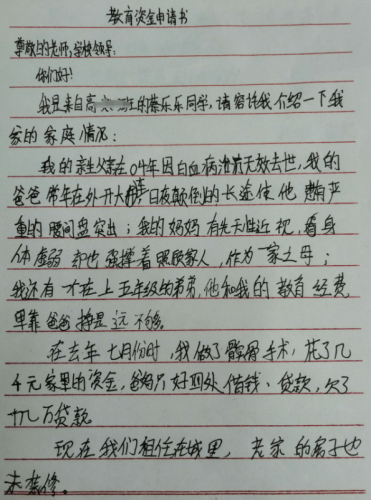 教育资金申请书
尊敬的老师,学校领导:
你们好!
我是来自高 班的蔡乐乐同学,请容许我介绍一下我
家的家庭情况:
我的亲生父亲在04年因白血病治疗无效去世,我的
爸爸常年在外开大 日夜颠倒的长途使他患有严
重的腰间盘突出;我的妈妈有先天性近视,看身
体虚弱却也强撑着照顾家人,作为一家之母;
我还有一才在上五年级的弟弟,他和我的教育经费
单靠爸爸挣是远不够。
在去年七月份时,我做了髌骨手术,花了几
千元家里的资金,爸妈只好四处借钱、贷款,欠了
十几万贷款
现在我们租住在城里,老家的房子也
未装修。